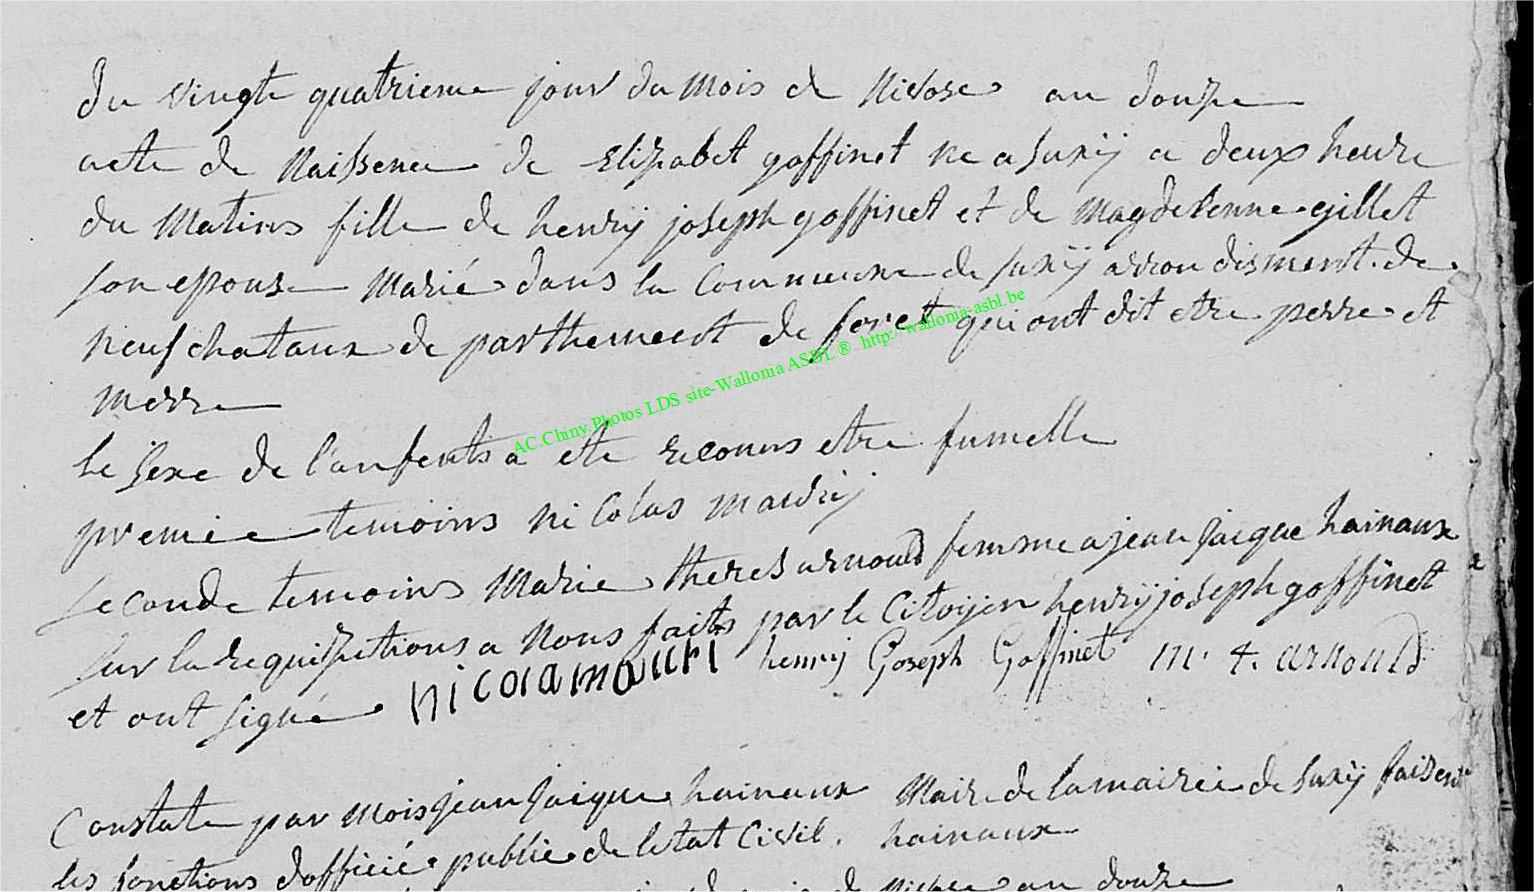 du vingte quatrieme jour du mois de Nivose an douze
acte de Naissence de Elizabet goffinet ne a Suxÿ a deux heure
du Matins fille de henrÿ joseph goffinet et de Magdelenne gillet
son epouse Marié dans la Commune de Suxÿ arrondisment de
neufchataux de parthement de foret qui ont dit etre perre et
merre
le sexe de l'anfents a ete reconus etre fumelle
premiee temoins nicolas maurÿ
seconde temoins Marie theres arnould femme a jean jacque hainaux
sur la requizitions a Nous faits par le Citoÿen henrÿ joseph goffinet
et ont signé nicola mauri henrÿ Joseph Goffinet m. t. arnould
Constate par Mois jean jacque hainaux Maire de la mairie de Suxÿ faisent
les fonctions d'officié public de letat Civil. hainaux
de Nivose an douze
AC.Chiny.Photos LDS site-Wallonia ASBL ® http://wallonia-asbl.be